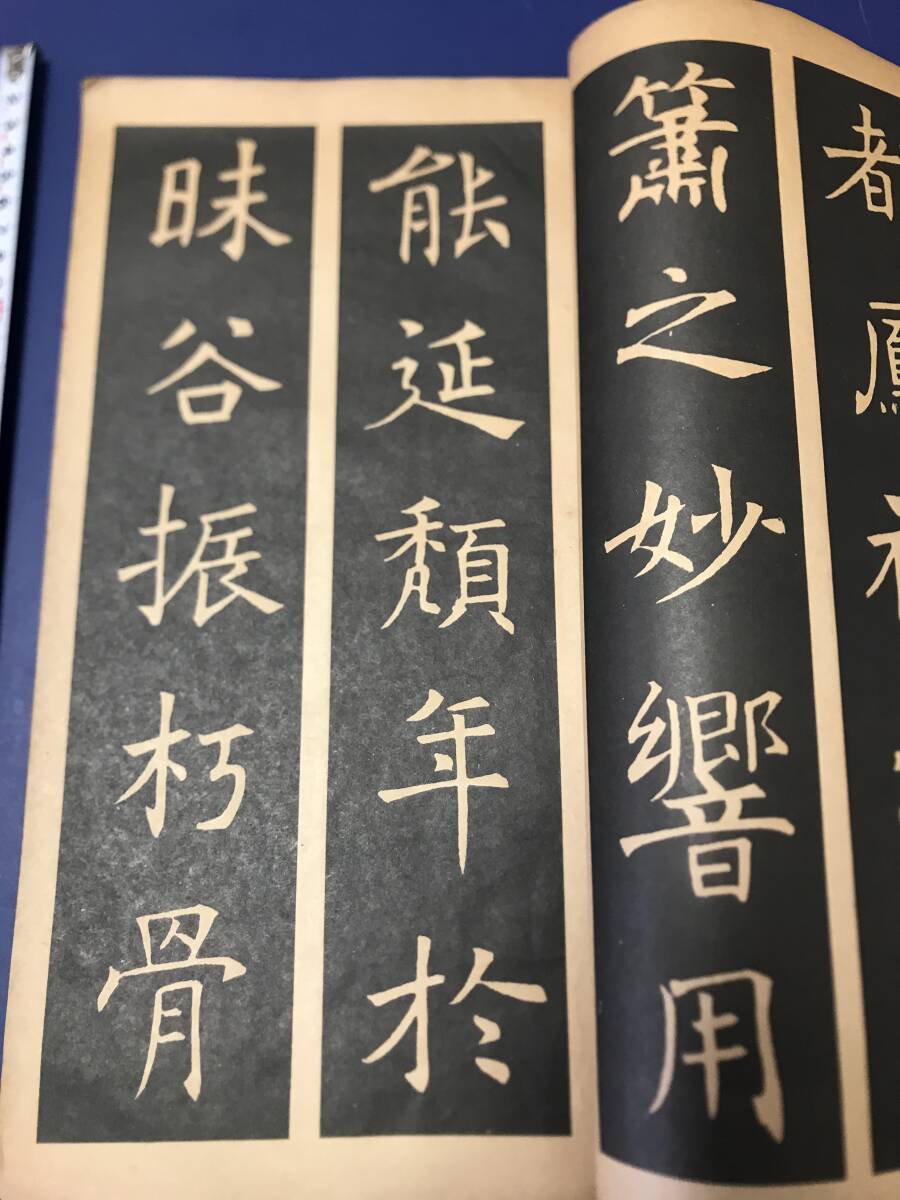 都鳳
簫之妙響用
能延頽年於
昧谷振朽骨